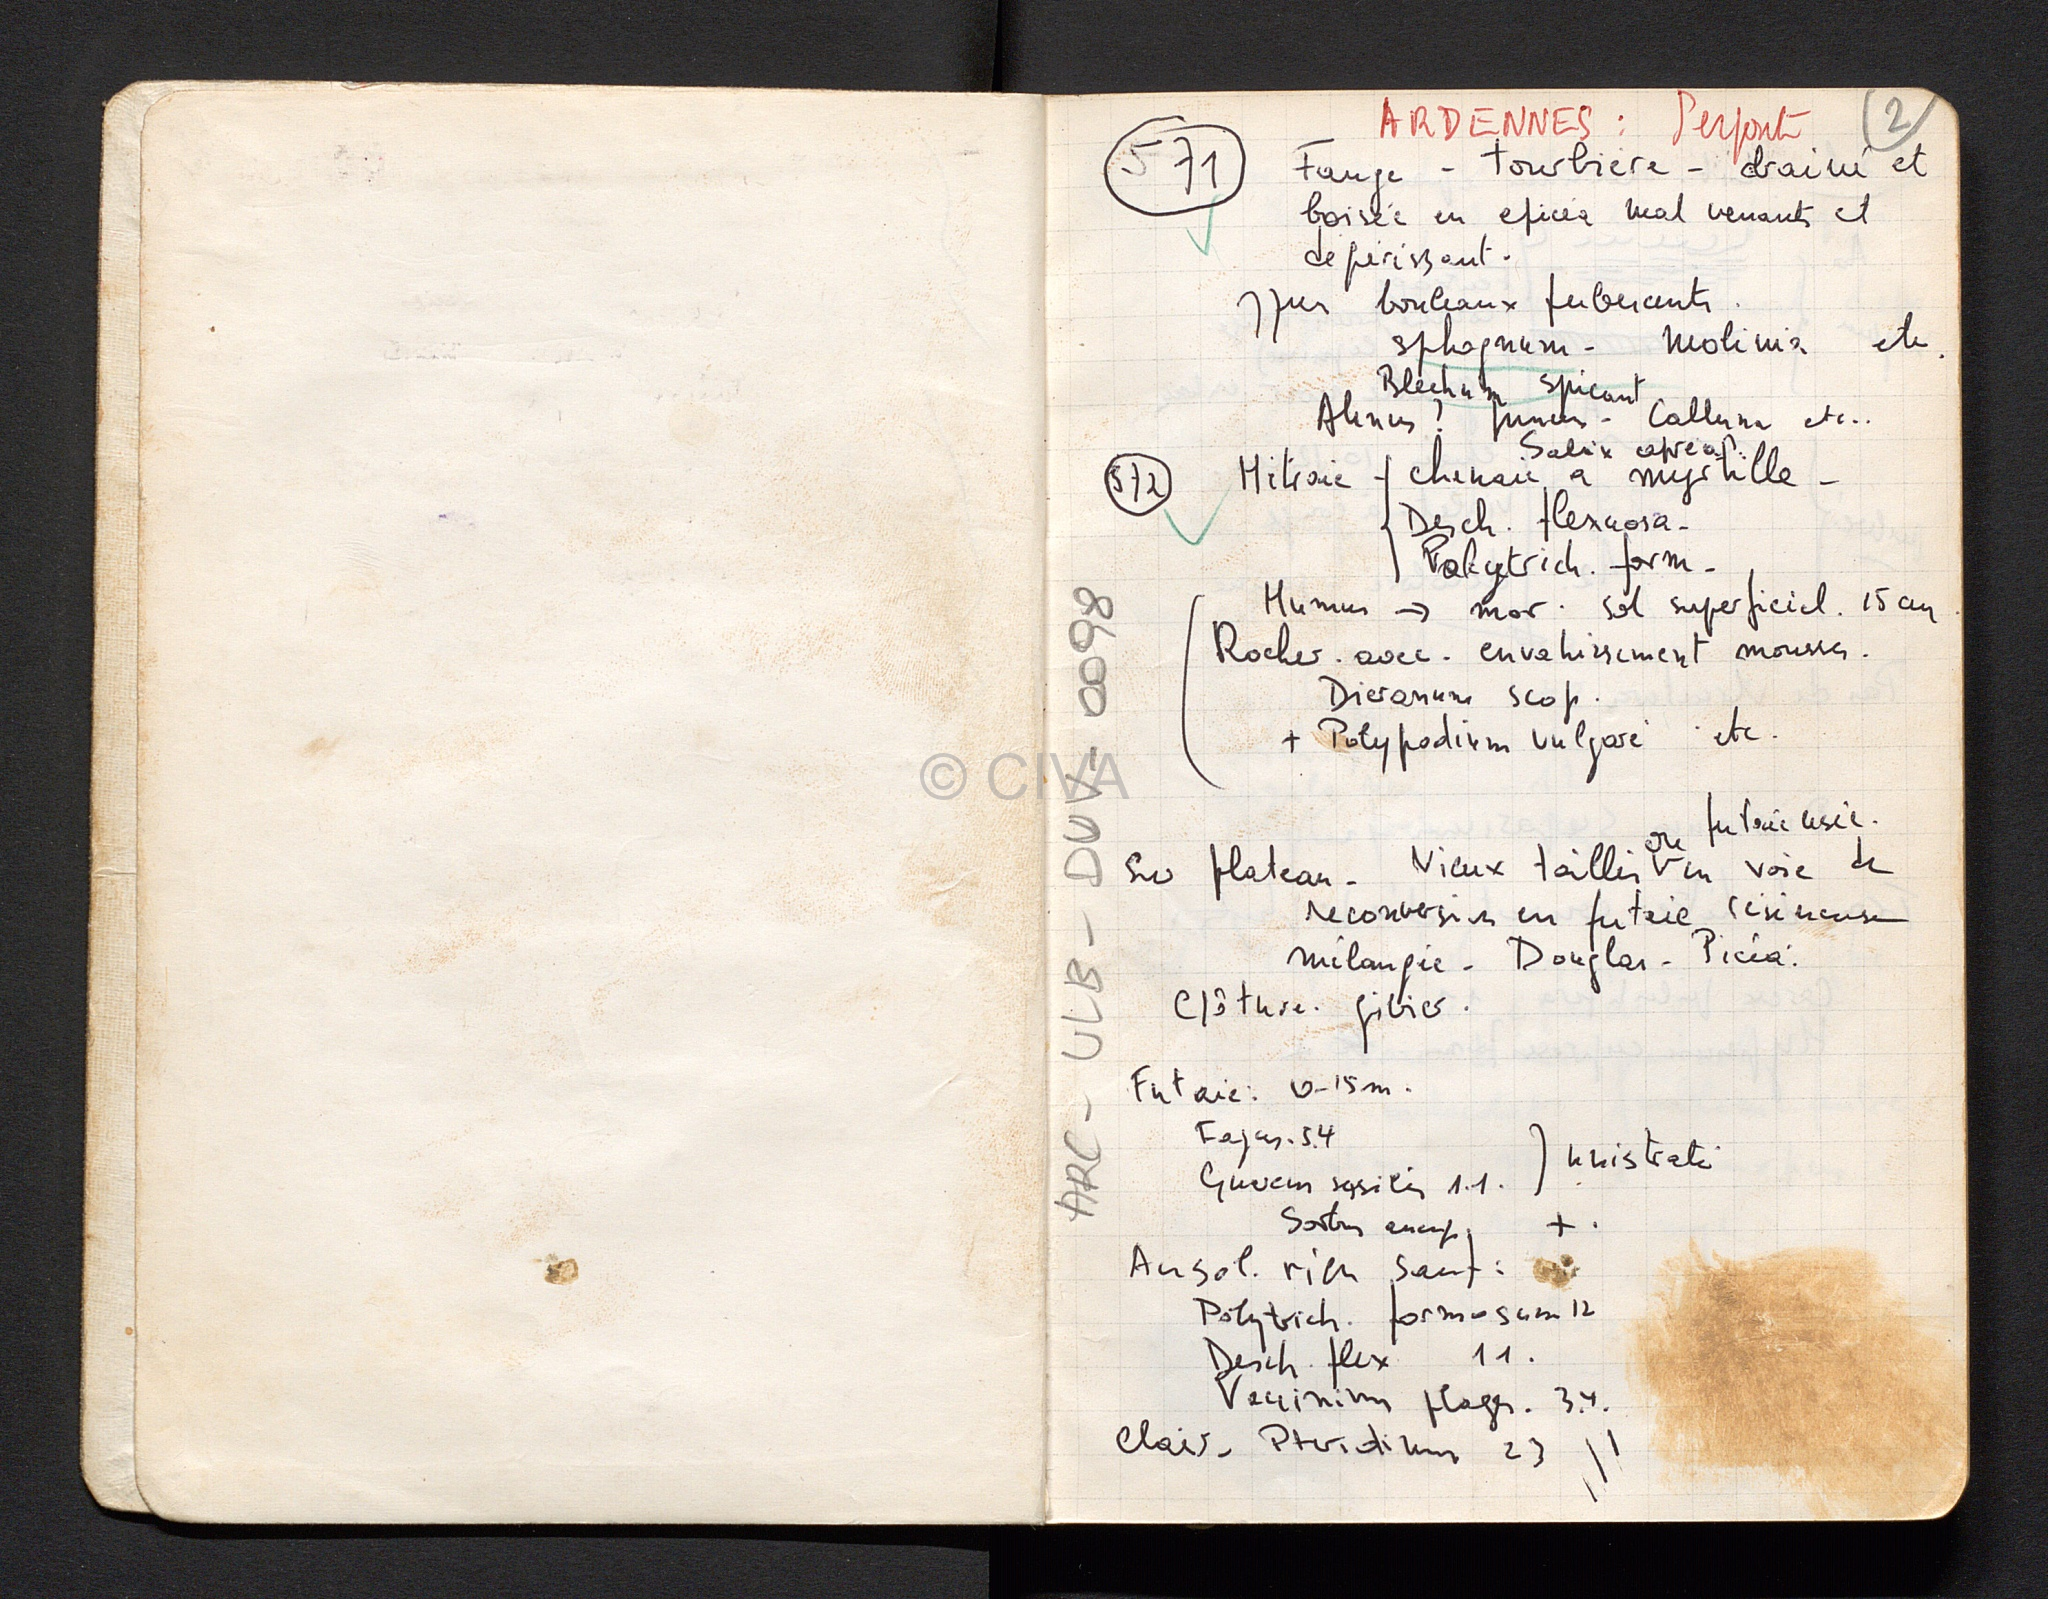 ARDENNES : (2)
571 Fange - tourbière - drainé et
boisée en epicéa mal venants et
dépérissant.
bouleaux pubescents.
sphagnum - Molinia etc.
Blechnum spicant
Alnus? juncus - Calluna etc..
Salix caprea?
572 Hêtraie - chenaie a myrtille -
Desch. flexuosa -
Polytrich. form -
Humus → mor. sol superficiel. 15 cm.
Rocher. avec. envahissement mousses.
Dicranum scop.
+ Polypodium vulgare etc.
ou futaie usée.
Sur plateau - Vieux taillis V en voie de
reconversion en futaie résineuse
mélangée - Douglas - Picéa.
Clôture. gibier.
Futaie: 0-15 m.
Fagus. 5.4
Quercus sessilis 1.1. } unistrate
Sorbus aucup. + .
Au sol. rien sauf:
Polytrich. formosum 12
Desch. flex 11.
Vaccinium plages. 3.4.
Clair - Pteridium 23
ARC - ULB - DUV - 0098
© CIVA